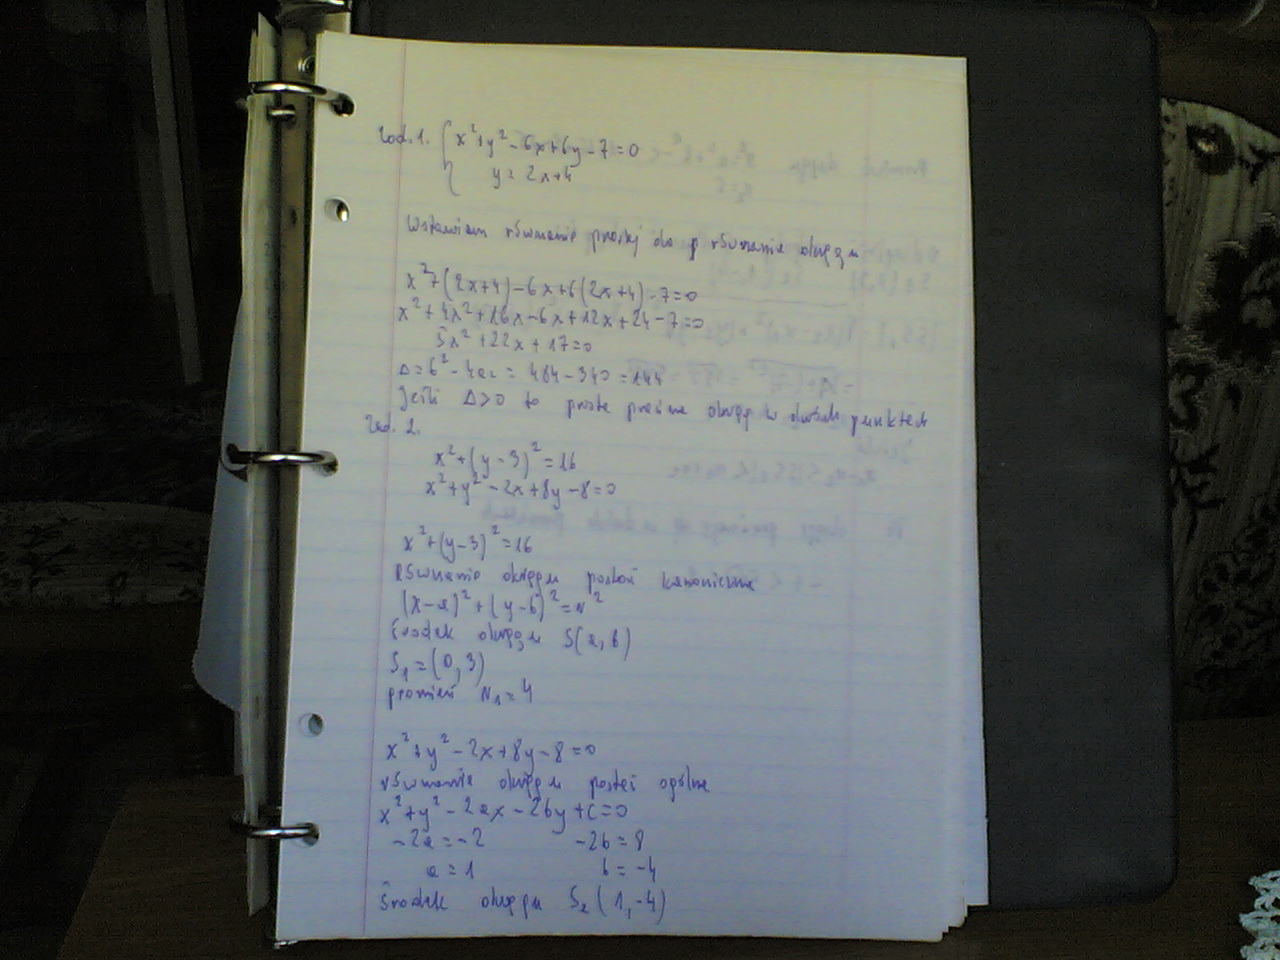 Zad. 1. { x²+y²-6x+6y-7=0
y=2x+4
Wstawiam równanie prostej do równania okręgu
x²+(2x+4)-6x+6(2x+4)-7=0
x²+4x²+16x-6x+12x+24-7=0
5x²+22x+17=0
Δ=b²-4ac=484-340=144
Jeśli Δ>0 to prosta przecina okrąg w dwóch punktach
Zad. 2.
x²+(y-3)²=16
x²+y²-2x+8y-8=0
x²+(y-3)²=16
równanie okręgu postać kanoniczna
(x-a)²+(y-b)²=r²
Środek okręgu S(a,b)
S₁=(0,3)
promień r₁=4
x²+y²-2x+8y-8=0
równanie okręgu postać ogólna
x²+y²-2ax-2by+c=0
-2a=-2 -2b=8
a=1 b=-4
Środek okręgu S₂(1,-4)